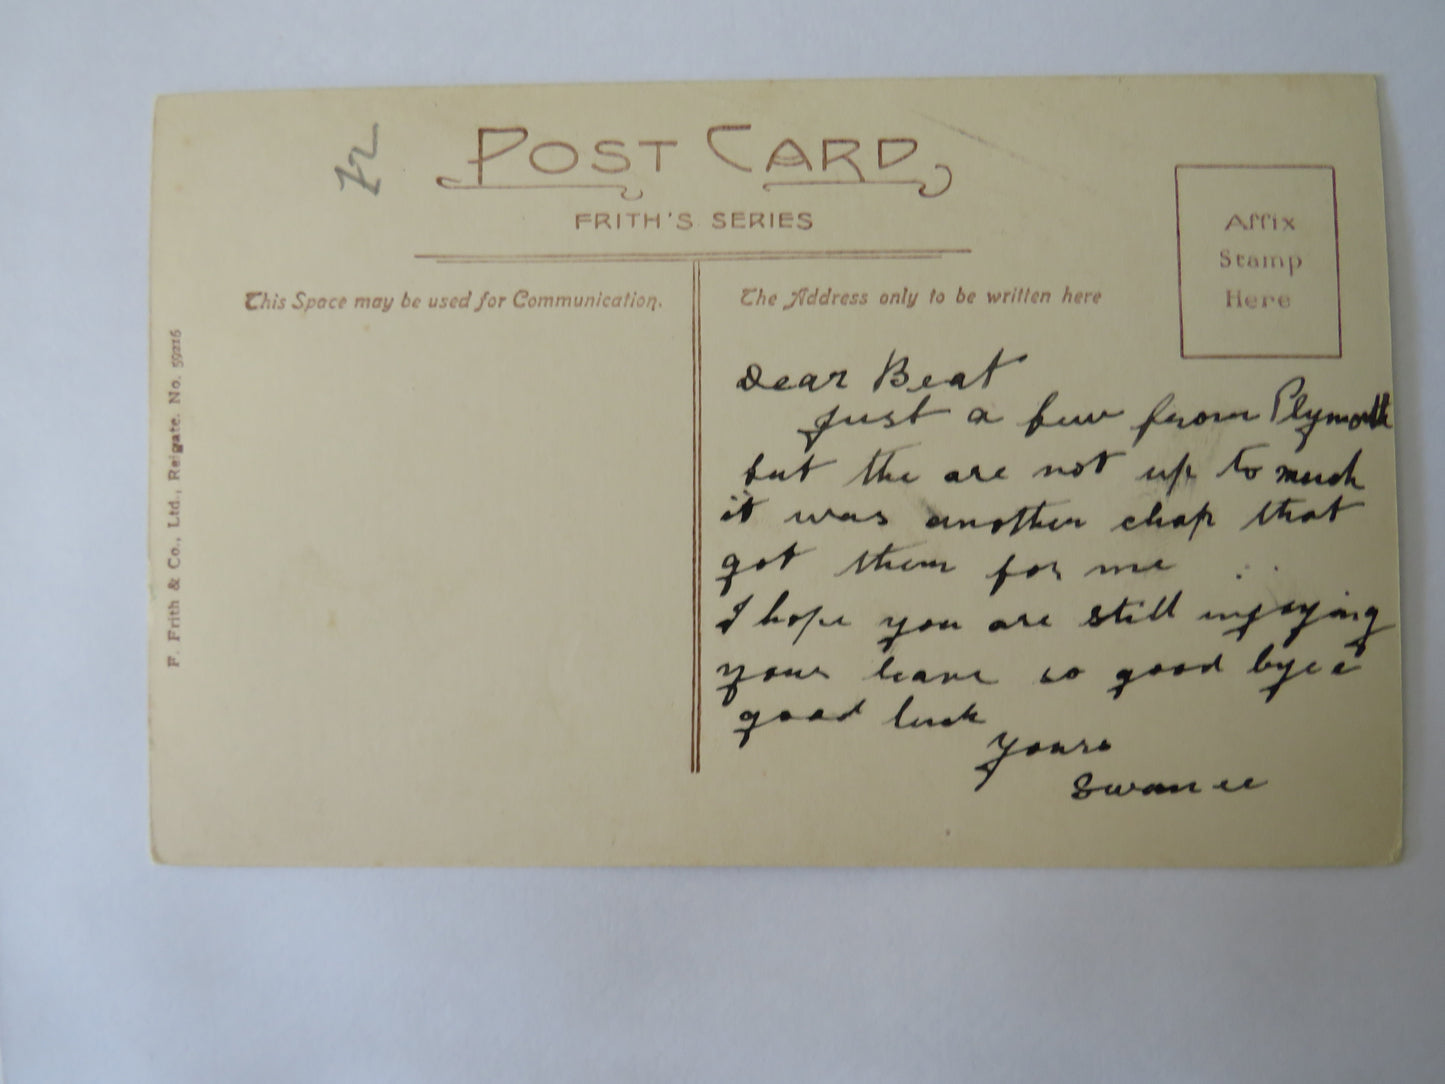 POST CARD
FRITH'S SERIES
This Space may be used for Communication.
The Address only to be written here
Affix
Stamp
Here
F. Frith & Co., Ltd., Reigate. No. 59216
Dear Beat
Just a few from Plymouth
but the are not up to much
it was another chap that
got them for me
I hope you are still injoying
your leave so good bye &
good luck
Yours
Swanee